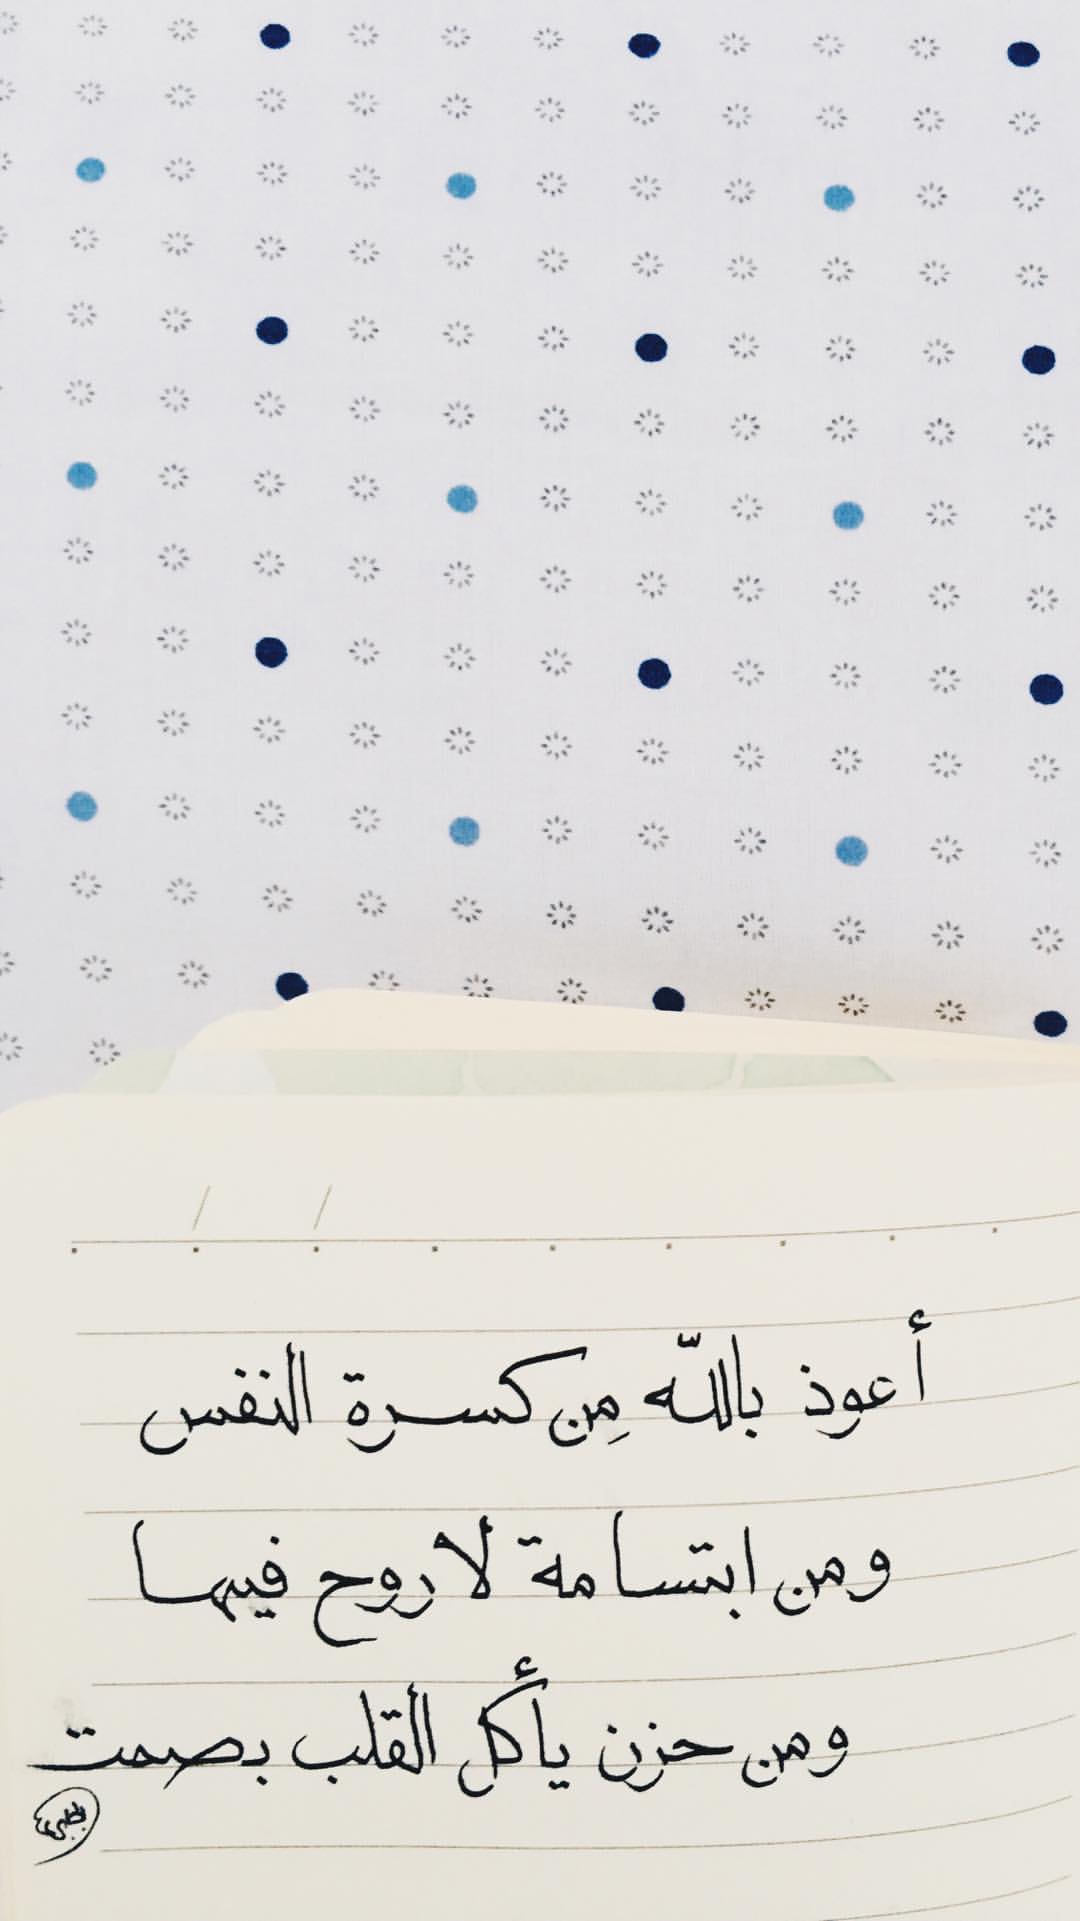 أعوذ باللّه مِن كسرة النفس
ومن ابتسامة لا روح فيها
ومن حزن يأكل القلب بصمت